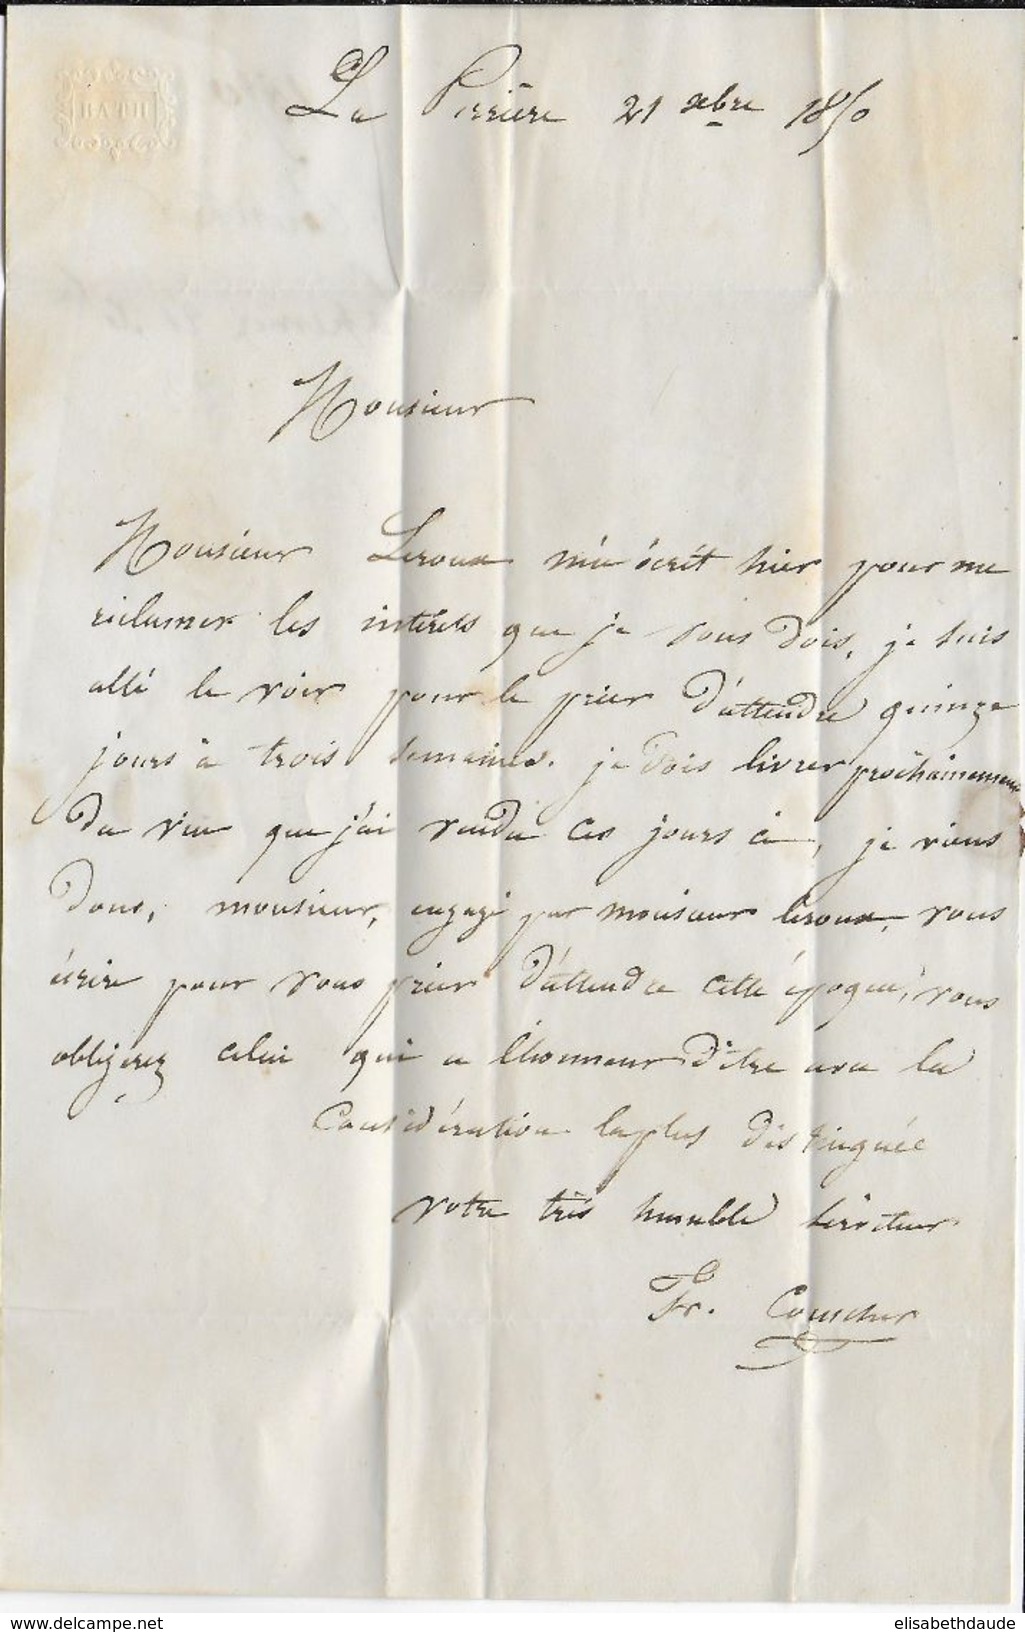 BATH
La Perrière 21 xbre 1850
Monsieur
Monsieur Leroux m'a écrit hier pour me
réclamer les intérets que je vous dois, je suis
allé le voir pour le prier d'attendre quinze
jours à trois semaines. je dois livrer prochainement
du vin que j'ai vendu ces jours ci, je viens
donc, monsieur, engagé par monsieur leroux, vous
écrire pour vous prier d'attendre cette époque, vous
obligerez celui qui a l'honneur d'être avec la
Considération la plus distinguée
votre très humble serviteur
Fr. Couscher
www.delcampe.net
elisabethdaude